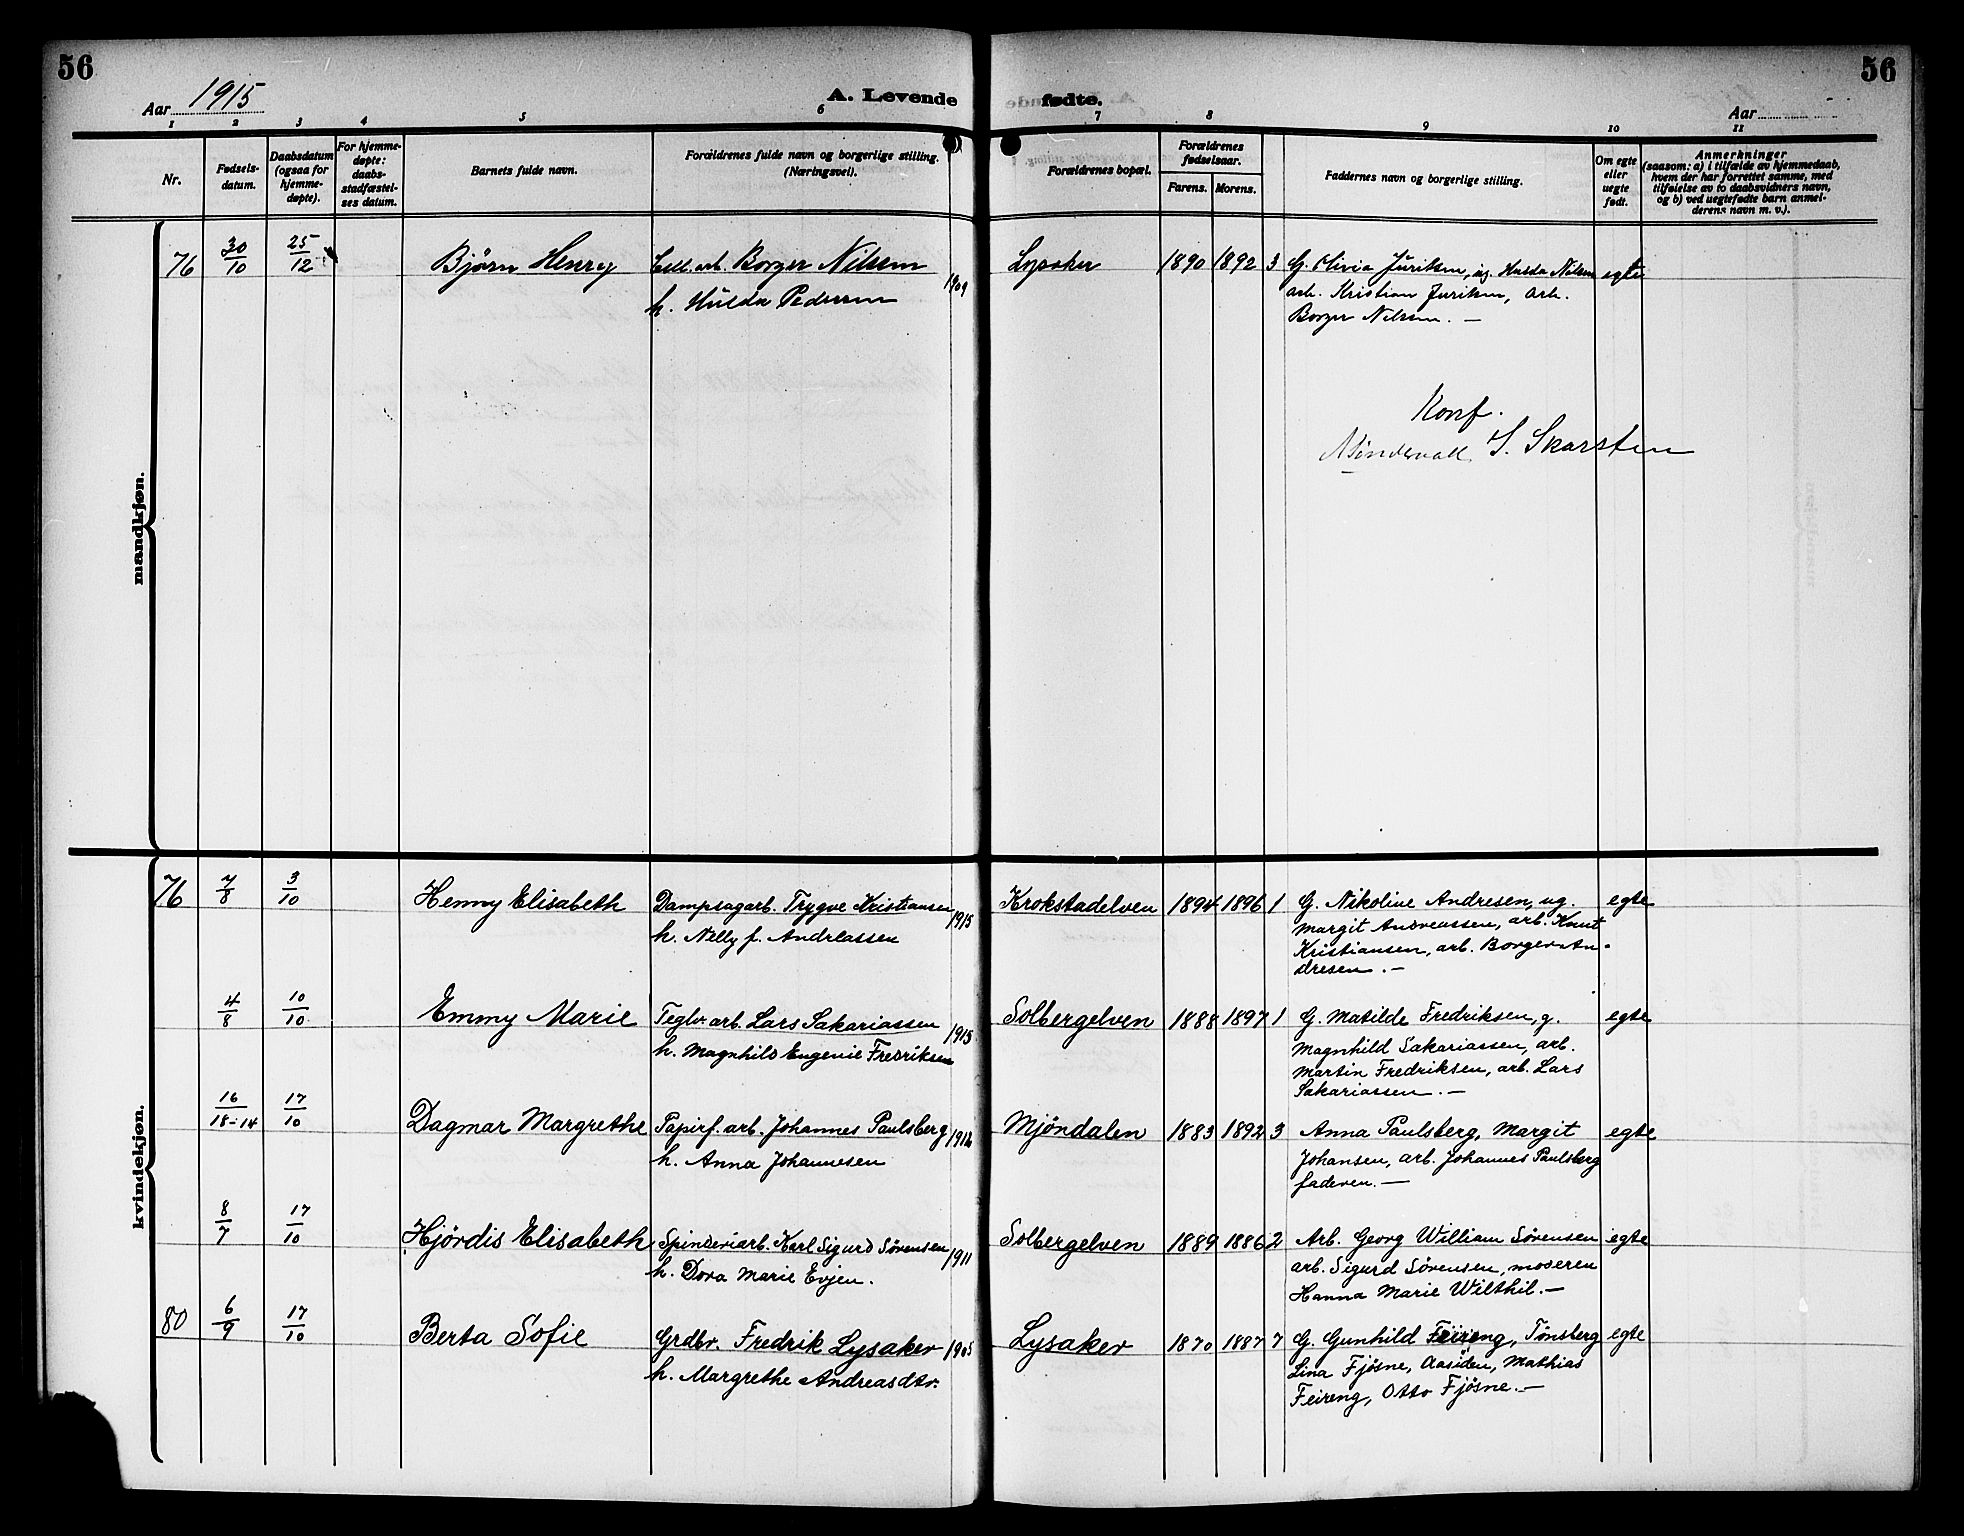 56
56
Aar 1915
A. Levende fødte.
Aar
1 2 3 4 5 6 7 8 9 10 11
Nr.
Fødsels-
datum.
Daabsdatum
(ogsaa for
hjemme-
døpte).
For hjemme-
døpte:
daabs-
stadfæstel-
ses datum.
Barnets fulde navn.
Forældrenes fulde navn og borgerlige stilling.
(Næringsvei).
Forældrenes bopæl.
Forældrenes
fødselsaar.
Farens. Morens.
Faddernes navn og borgerlige stilling.
Om egte
eller
uegte
født.
Anmerkninger
(saasom: a) i tilfælde av hjemmedaab,
hvem der har forrettet samme, med
tilføielse av to daabsvidners navn,
og b) ved uegtefødte barn anmel-
derens navn m. v.).
mandkjøn.
76 30/10 25/12 Bjørn Henry Cell. arb. Borger Nilsen 1909 Lysaker 1890 1892 3 G. Olivia Juriksen, ug. Hulda Nilsen egte
h. Hulda Pedersen
arb. Kristian Juriksen, arb.
Borger Nilsen. —
Konf.
S. Skarsten
kvindekjøn.
76 7/8 3/10 Henny Elisabeth Dampsagarb. Trygve Kristiansen 1915 Krokstadelven 1894 1896 1 G. Nikoline Andresen, ug. egte
h. Nelly f. Andreassen
Margit Andreassen, arb. Knut
Kristiansen, arb. Borger An-
dresen. —
4/8 10/10 Emmy Marie Teglv. arb. Lars Sakariassen 1915 Solbergelven 1888 1897 1 G. Matilde Fredriksen, g. egte
h. Magnhild Eugenie Fredriksen
Magnhild Sakariassen, arb.
Martin Fredriksen, arb. Lars
Sakariassen. —
16/18-14 17/10 Dagmar Margrethe Papirf. arb. Johannes Paulsberg Mjöndalen 1883 1892 3 Anna Paulsberg, Margit egte
h. Anna Johannesen
Johansen, arb. Johannes Paulsberg
faderen. —
8/7 17/10 Hjördis Elisabeth Spinderiarb. Karl Sigurd Sørensen 1911 Solbergelven 1889 1886 2 Arb. Georg William Sørensen egte
h. Dora Marie Evjen.
arb. Sigurd Sørensen, moderen
Hanna Marie Wilthil. —
80 6/9 17/10 Berta Sofie Grdbr. Fredrik Lysaker 1905 Lysaker 1870 1887 7 G. Gunhild Feireng, Tønsberg egte
h. Margrethe Andreasdtr.
Lina Fjøsne, Aasiden, Mathias
Feireng, Otto Fjøsne. —